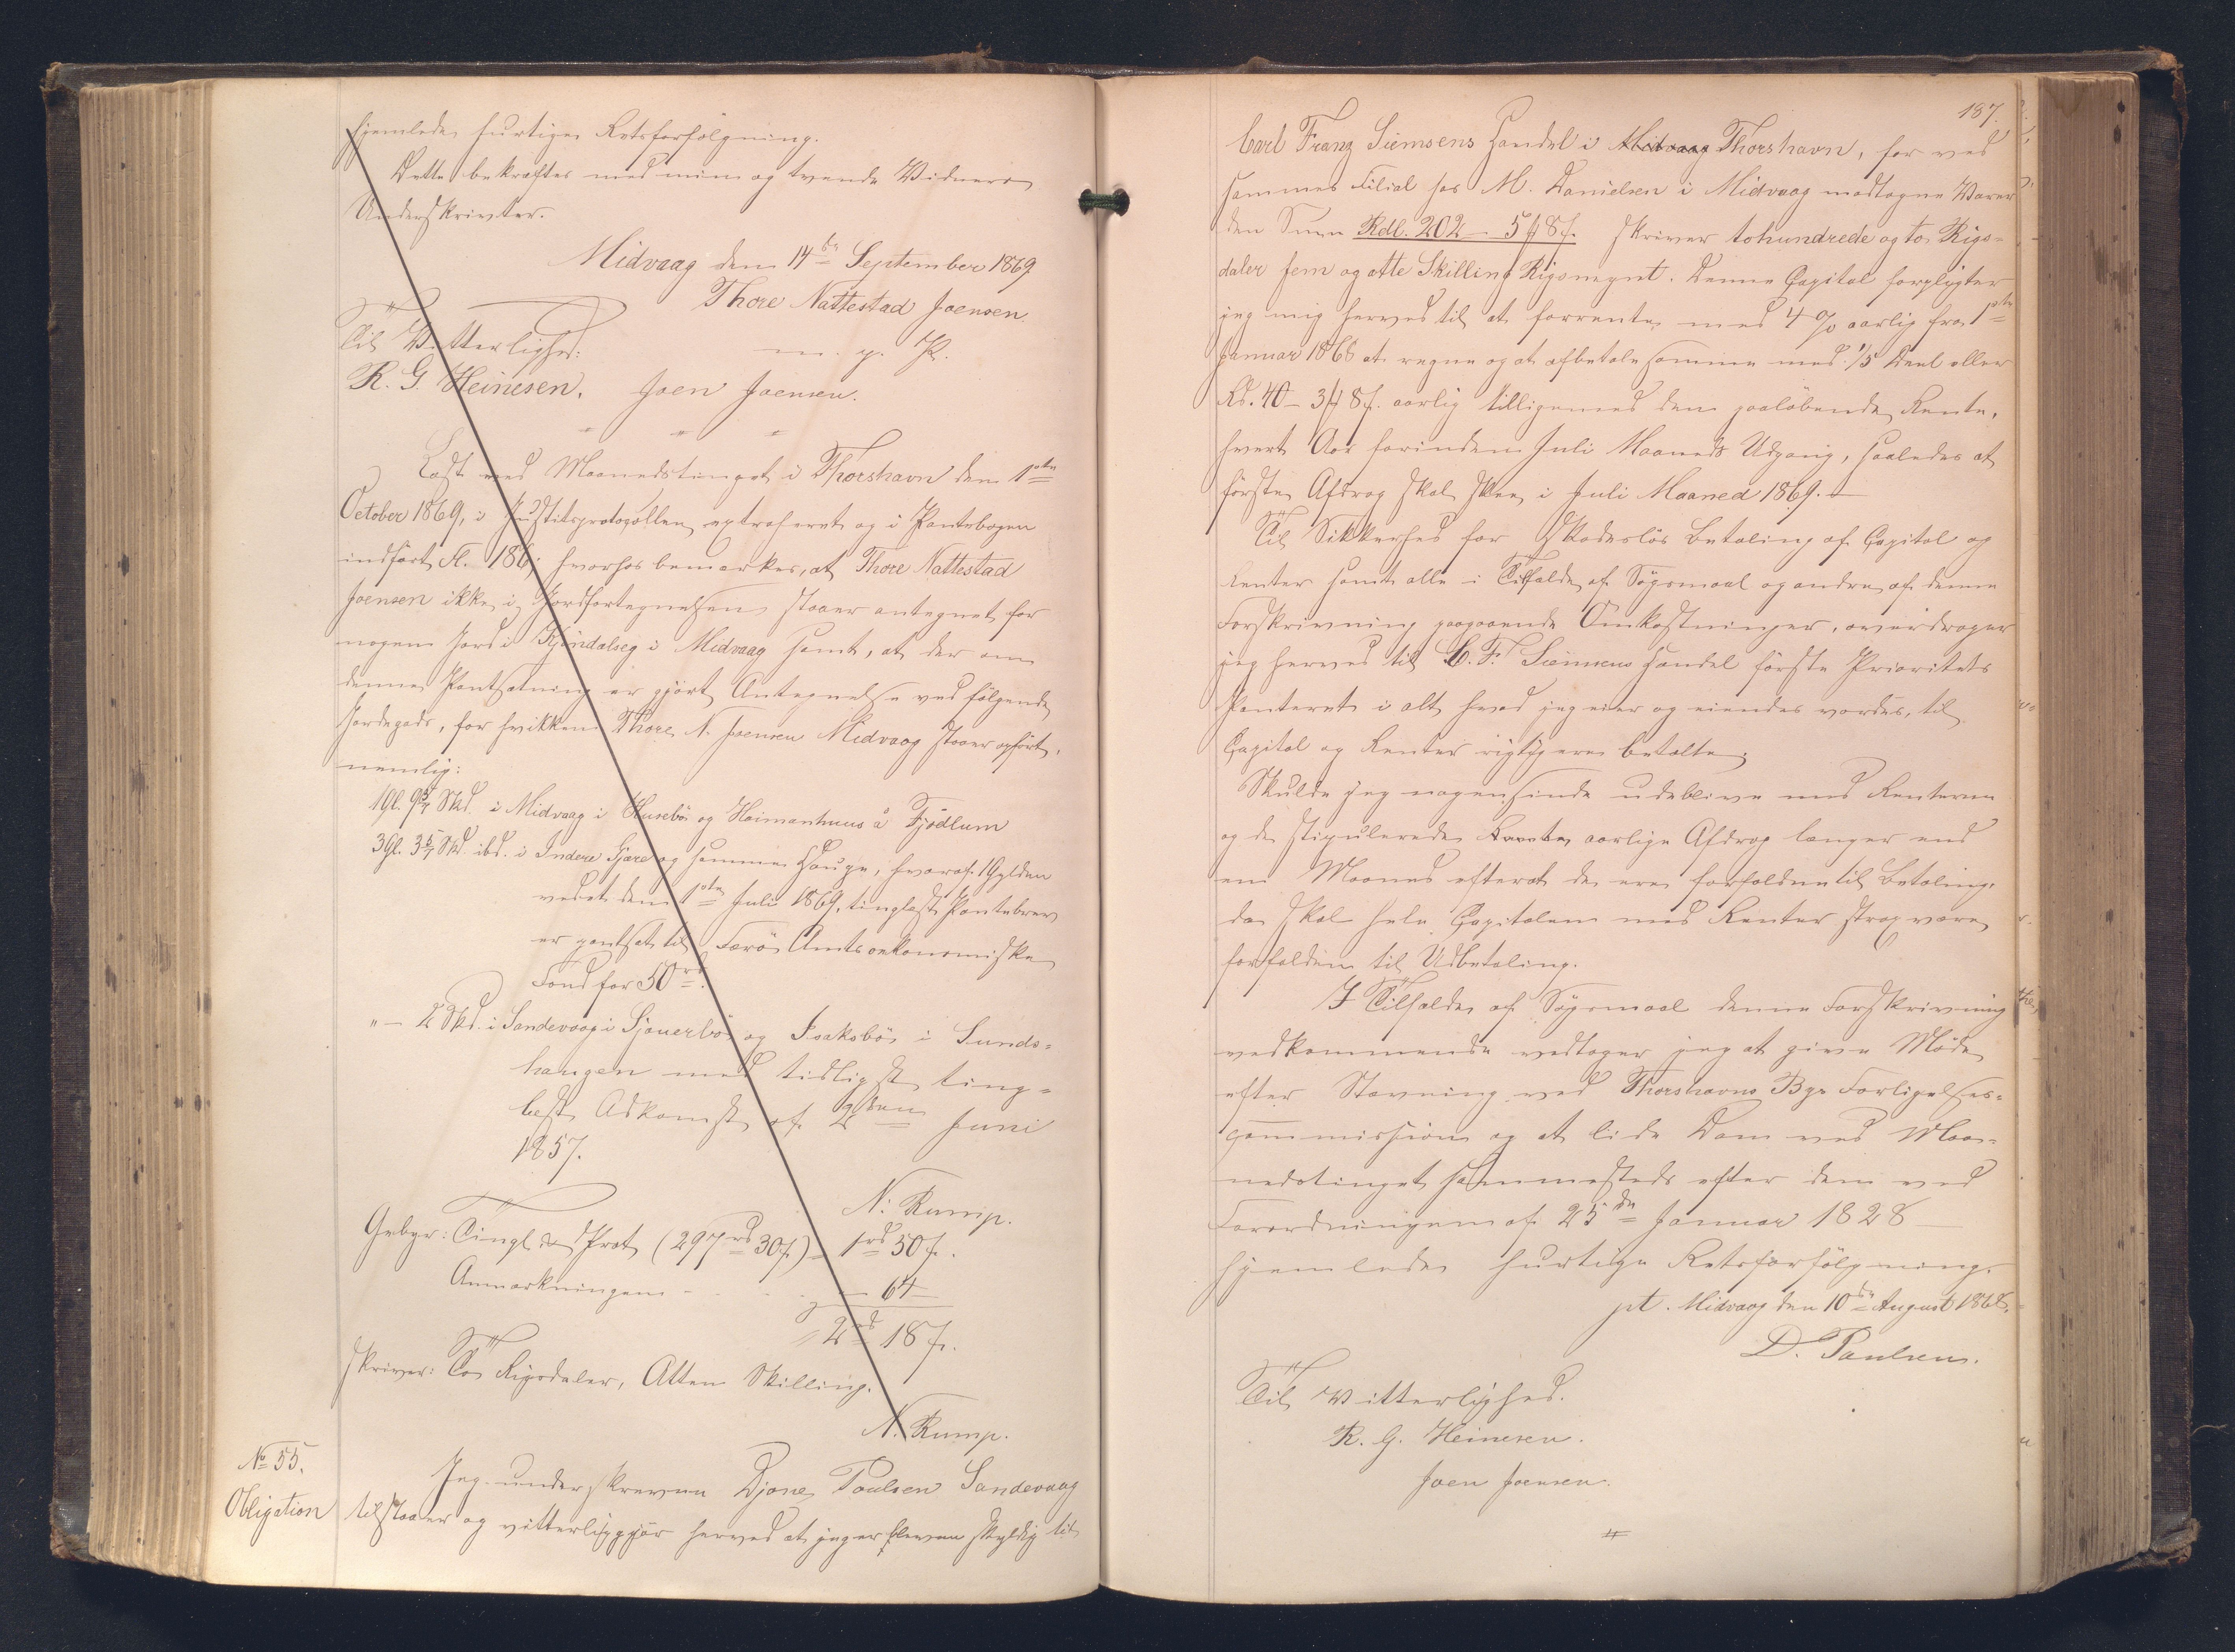 hjemlede hurtige Retsforfølgning.
Dette bekræftes med min og tvende Vidners
Underskrivter.
Midvaag den 14de September 1869
Thore Nattestad Joensen
m. p. P.
Til Vitterlighed:
R. G. Heinesen. Joen Joensen.
Læst ved Maanedstinget i Thorshavn den 1ste
October 1869, i Justitsprotocollen extraheret og i Pantebogen
indført Fl. 186; hvorhos bemærkes, at Thore Nattestad
Joensen ikke i Jordfortegnelsen staaer antegnet for
nogen Jord i Kjøndalseg i Midvaag samt, at der om
denne Pantsætning er gjort Antegnelse ved følgende
Jordegods, for hvilken Thore N. Joensen Midvaag staaer opført,
nemlig:
1 Gl. 9 3/4 Skd. i Midvaag i Husebø og Heimanhuus å Fjødlum
3 Gl. 3 5/7 Skd. ibd. i Indere Gjære og samme Hauge, hvoraf 1 Gylden
ved et den 1ste Juli 1869, tinglæst Pantebrev
er pantsat til Færø Amts oekonomiske
Fond for 50 rd.
" — 2 Skd. i Sandevaag i Sjouerbø og Isaksbø i Sunds=
haugen med tidligst ting=
læst Adkomst af 2den Juni
1857.
N. Rump.
Gebyr: Tingl. & Prot (297 rd 30 s.) — 1 rd 50 s.
Anmærkningen - - - — 64 —
2 rd 18 s.
skriver: To Rigsdaler, Atten Skilling.
N. Rump.
No 55.
Obligation
Jeg underskrevne Djone Poulsen Sandevaag
tilstaaer og vitterliggjør herved at jeg er bleven skyldig til
187.
Carl Franz Siemsens Handel i Midvaag Thorshavn, for ved
sammes Filial hos M. Danielsen i Midvaag modtagne Varer
den Sum Rdl. 202 — 5 ₰ 8 s. skriver tohundrede og to Rigs=
daler fem og otte Skilling Rigsmynt. Denne Capital forpligter
jeg mig herved til at forrente med 4 % aarlig fra 1ste
Januar 1868 at regne og at afbetale samme med 1/5 Deel eller
Rd. 40 — 3 ₰ 8 s. aarlig tilligemed den paaløbende Rente,
hvert Aar forinden Juli Maaneds Udgang, saaledes at
første Afdrag skal skee i Juli Maaned 1869. —
Til Sikkerhed for skadesløs Betaling af Capital og
Renter samt alle i Tilfælde af Søgsmaal og andre af denne
Forskrivning paagaaende Omkostninger, overdrager
jeg herved til C. F. Siemsens Handel første Prioritets
Panteret i alt hvad jeg eier og eiendes vorder, til
Capital og Renter rigtig ere betalte.
Skulde jeg nogensinde udeblive med Renterne
og de stipulerede Rente aarlige Afdrag længer end
en Maaned efterat de ere forfaldne til Betaling,
da skal hele Capitalen med Renter strax være
forfalden til Udbetaling.
I Tilfælde af Søgsmaal denne Forskrivning
vedkommende vedtager jeg at give Møde
efter Stævning ved Thorshavns Byes Forligelses=
commission og at lide Dom ved Maa=
nedstinget sammesteds efter den ved
Forordningen af 25de Januar 1828
hjemlede hurtige Retsforfølgning.
pt. Midvaag den 10de August 1868.
D. Paulsen.
Til Vitterlighed.
R. G. Heinesen.
Joen Joensen.